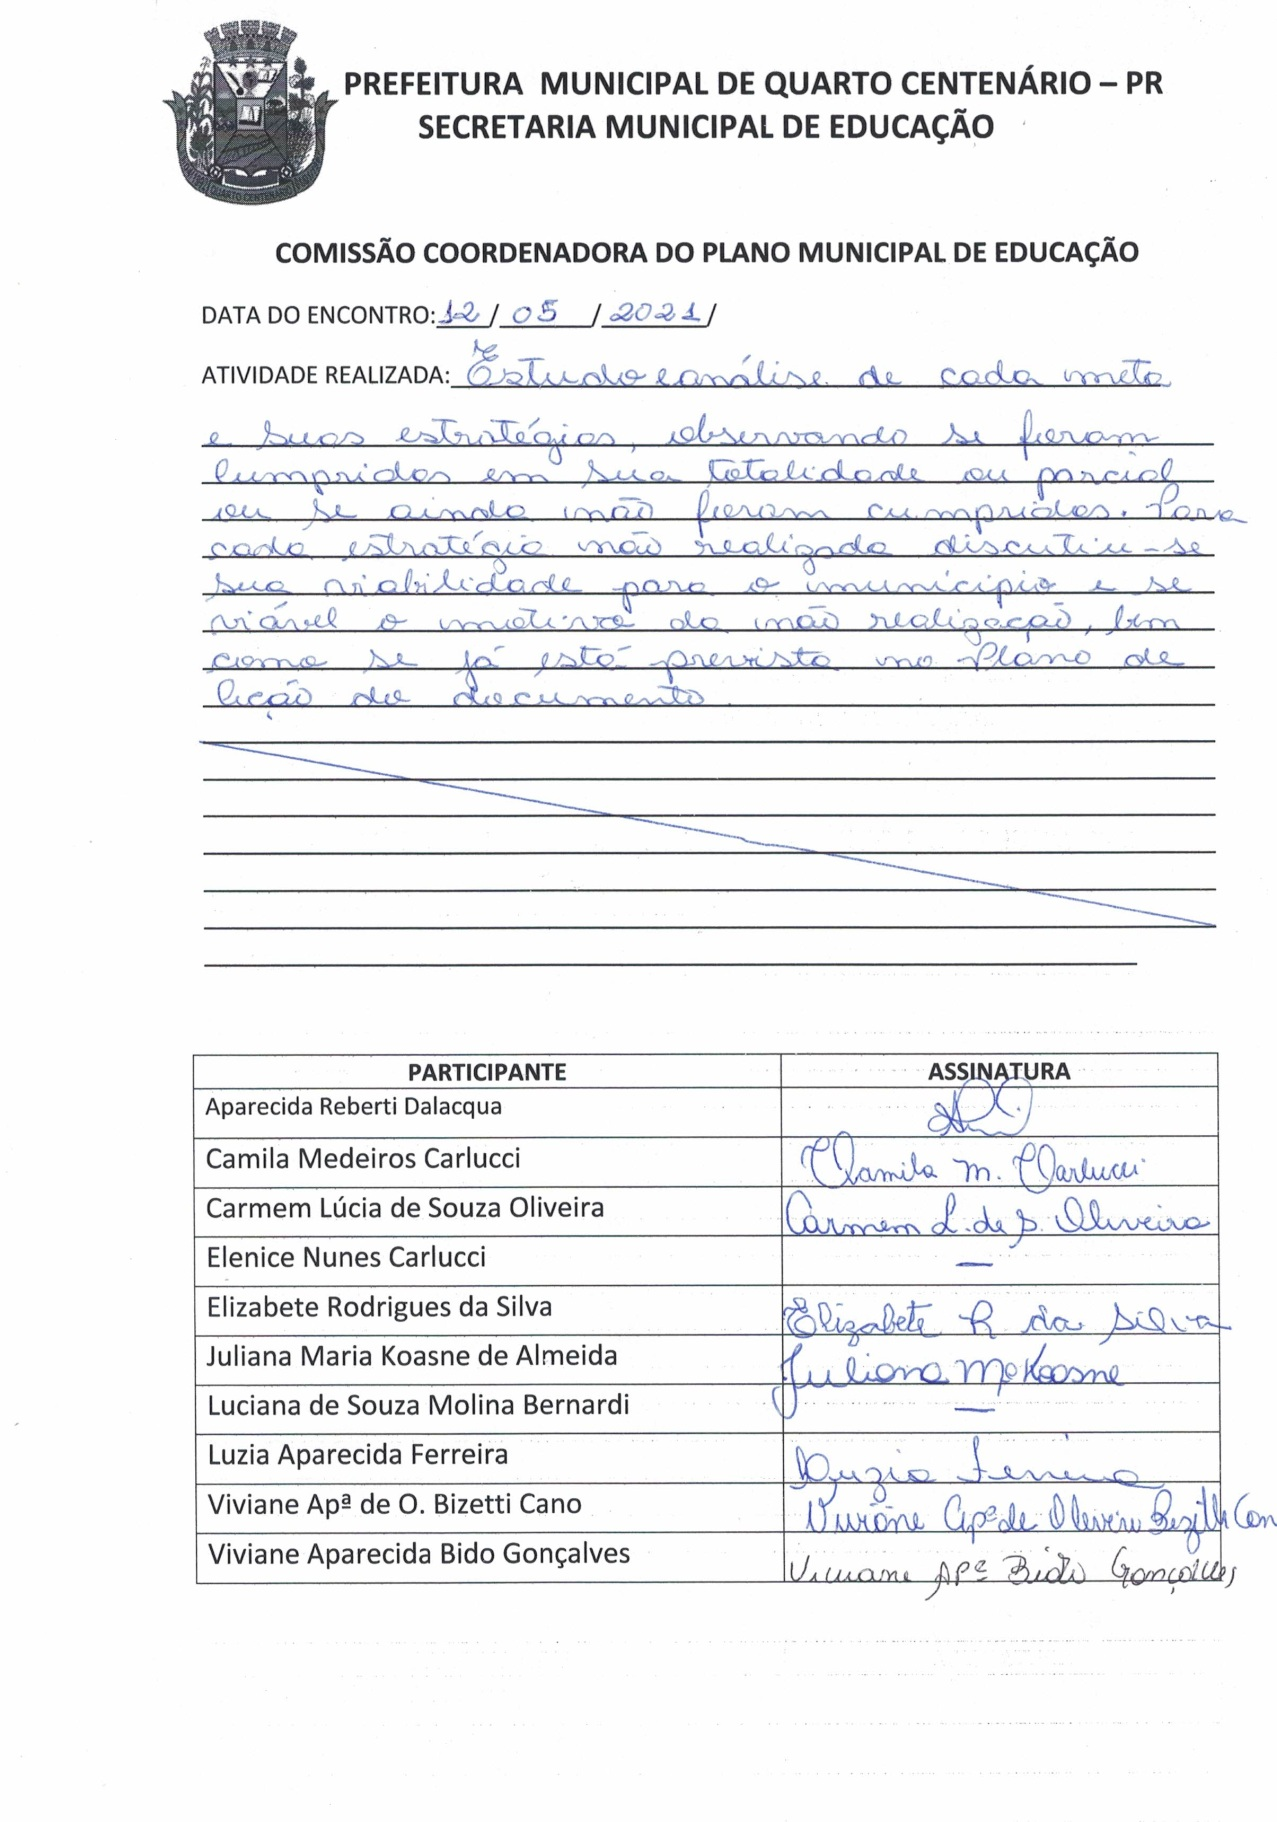 PREFEITURA MUNICIPAL DE QUARTO CENTENÁRIO – PR
SECRETARIA MUNICIPAL DE EDUCAÇÃO
QUARTO CENTENÁRIO
COMISSÃO COORDENADORA DO PLANO MUNICIPAL DE EDUCAÇÃO
DATA DO ENCONTRO: 12 / 05 / 2021 /
ATIVIDADE REALIZADA: Estudo e análise de cada meta
e suas estratégias, observando se foram
cumpridas em sua totalidade ou parcial
ou se ainda não foram cumpridas. Para
cada estratégia não realizada discutiu-se
sua viabilidade para o município e se
viável o motivo da não realização, bem
como se já está prevista no Plano de
Ação do documento.
PARTICIPANTE ASSINATURA
Aparecida Reberti Dalacqua
Camila Medeiros Carlucci Camila M. Carlucci
Carmem Lúcia de Souza Oliveira Carmem L. de S. Oliveira
Elenice Nunes Carlucci —
Elizabete Rodrigues da Silva Elizabete R da Silva
Juliana Maria Koasne de Almeida Juliana Mª Koasne
Luciana de Souza Molina Bernardi —
Luzia Aparecida Ferreira Luzia Ferreira
Viviane Apª de O. Bizetti Cano Viviane Apª de Oliveira Bizetti Can
Viviane Aparecida Bido Gonçalves Viviane Apª Bido Gonçalves